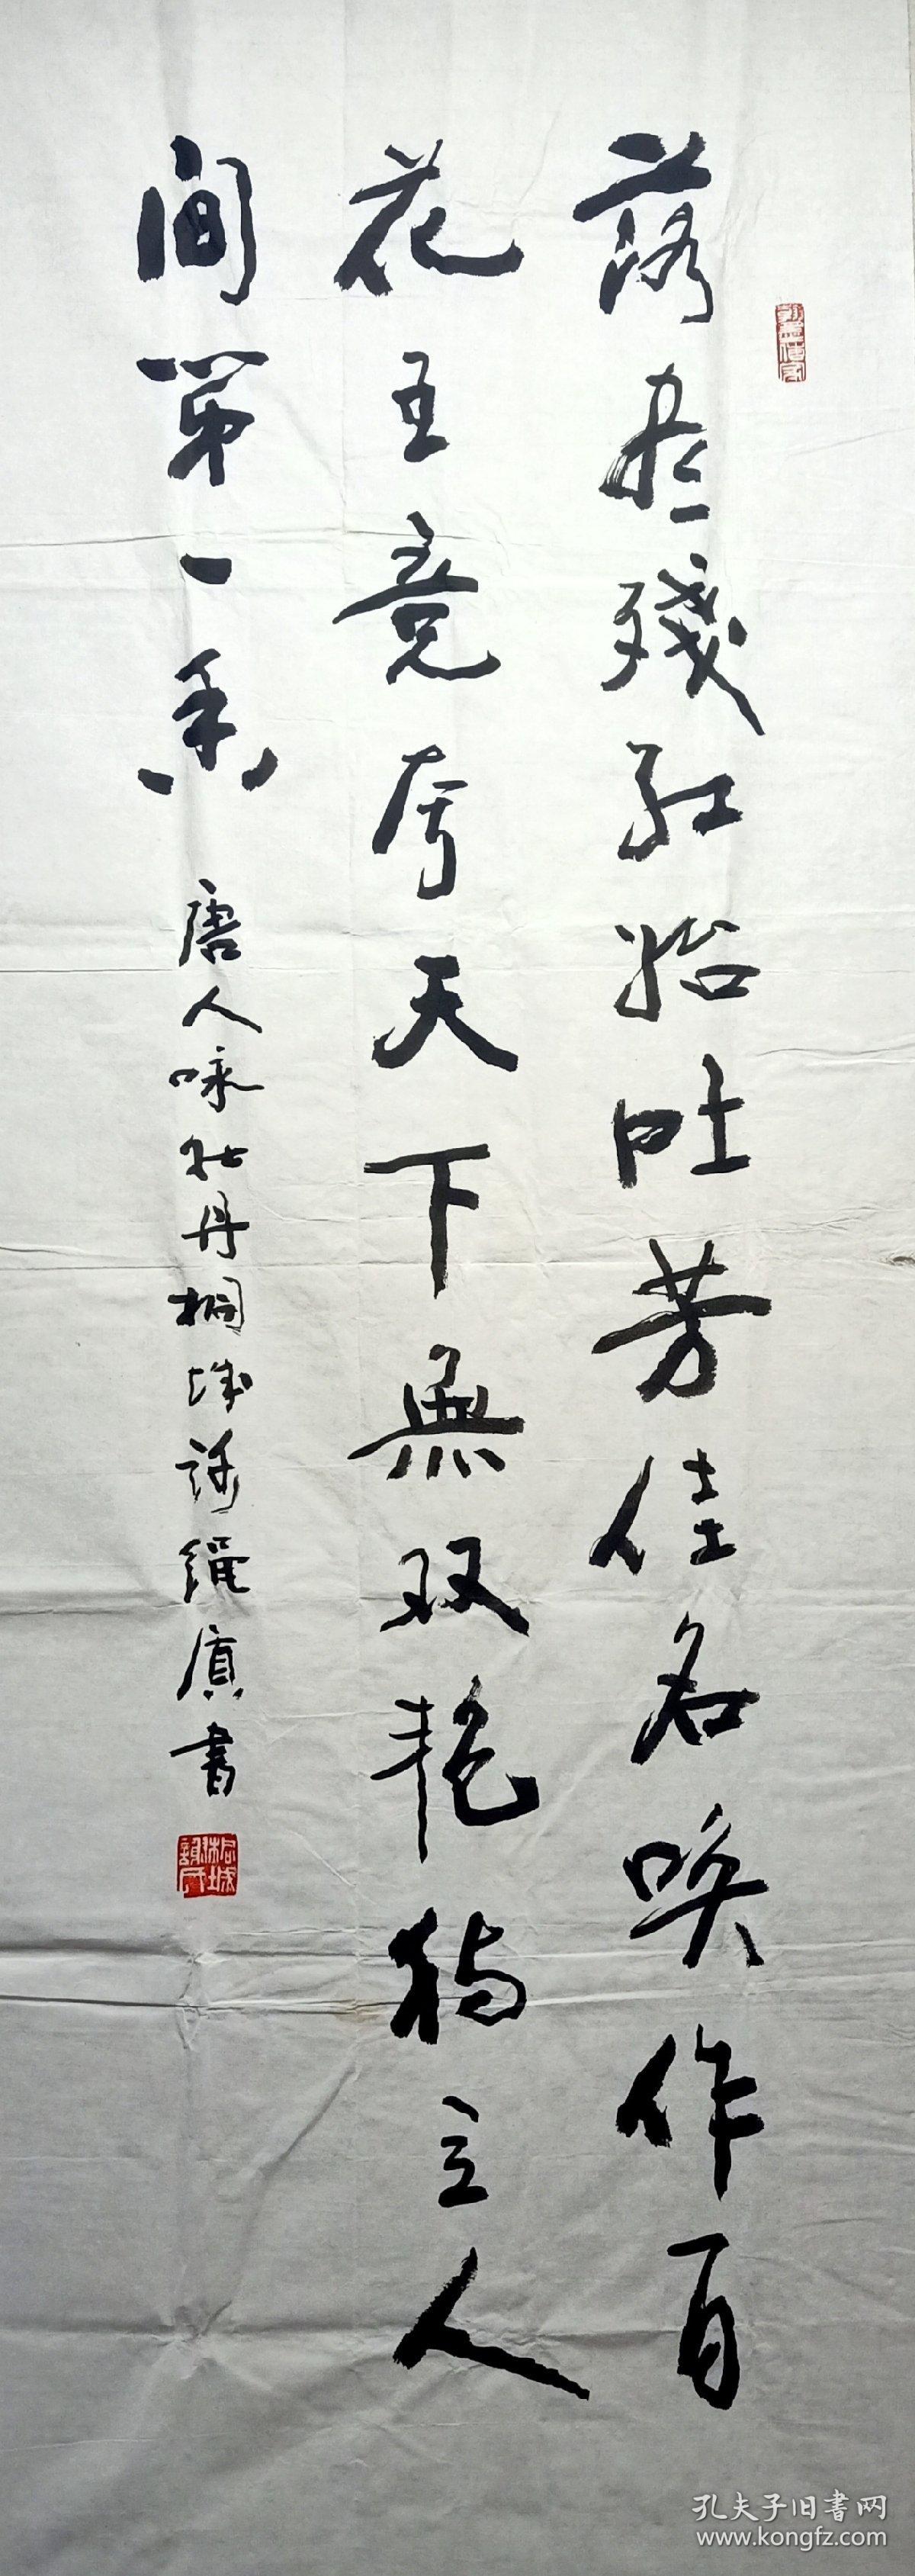 落尽殘红始吐芳佳名唤作百
花王竞夸天下無双艳独立人
间第一香
唐人咏牡丹桐城谢绳贞書
孔夫子旧書网
www.kongfz.com